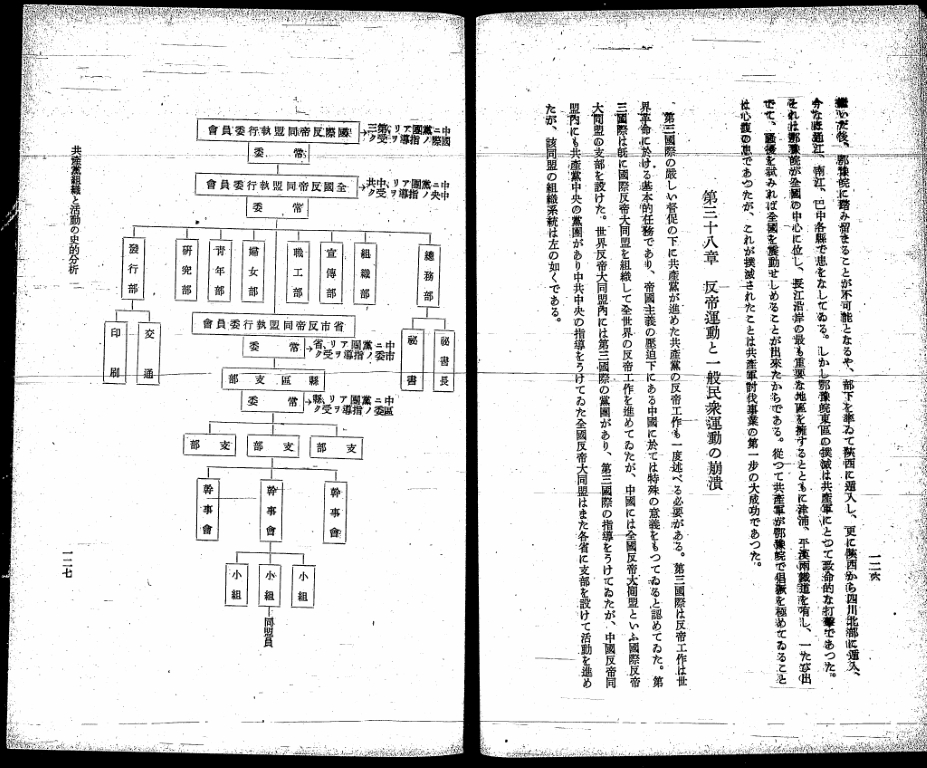 一二六
繼いだ後、鄂豫皖に踏み留まることが不可能となるや、部下を率ゐて陝西に遁入し、更に陝西から四川北部に遁入、
今な既通江、南江、巴中各縣で患をなしてゐる。しかし鄂豫皖東區の撲滅は共產軍にとつて致命的な打擊であつた。
それは鄂豫皖が全國の中心に位し、長江沿岸の最も重要な地區を擁するとともに津浦、平漢兩鐵道を有し、一たび出
でて、騷擾を試みれば全國を震動せしめることが出來たからである。從つて共產軍が鄂豫皖で猖獗を極めてゐること
は心腹の患であつたが、これが撲滅されたことは共產軍討伐事業の第一步の大成功であつた。
第三十八章 反帝運動と一般民衆運動の崩潰
第三國際の嚴しい督促の下に共產黨が進めた共產黨の反帝工作も一度述べる必要がある。第三國際は反帝工作は世
界革命に於ける基本的任務であり、帝國主義の壓迫下にある中國に於ては特殊の意義をもつてゐると認めてゐた。第
三國際は旣に國際反帝大同盟を組織して全世界の反帝工作を進めてゐたが、中國には全國反帝大同盟といふ國際反帝
大同盟の支部を設けた。世界反帝大同盟內には第三國際の黨團があり、第三國際の指導をうけてゐたが、中國反帝同
盟內にも共產黨中央の黨團があり中共中央の指導をうけてゐた全國反帝大同盟はまた各省に支部を設けて活動を進め
たが、該同盟の組織系統は左の如くである。
會員委行執盟同帝反際國
中ニ黨團アリ、第三
國際ノ指導ヲ受ク
委 常
會員委行執盟同帝反國全
中ニ黨團アリ、中共
中央ノ指導ヲ受ク
委 常
總務部
組織部
宣傳部
職工部
婦女部
青年部
研究部
發行部
秘書長
秘書
交通
印刷
會員委行執盟同帝反市省
委 常
中ニ黨團アリ、省
市委ノ指導ヲ受ク
部支區縣
委 常
中ニ黨團アリ、縣
區委ノ指導ヲ受ク
部支
部支
部支
幹事會
幹事會
幹事會
小組
小組
小組
同盟員
共產黨組織と活動の史的分析
一二七